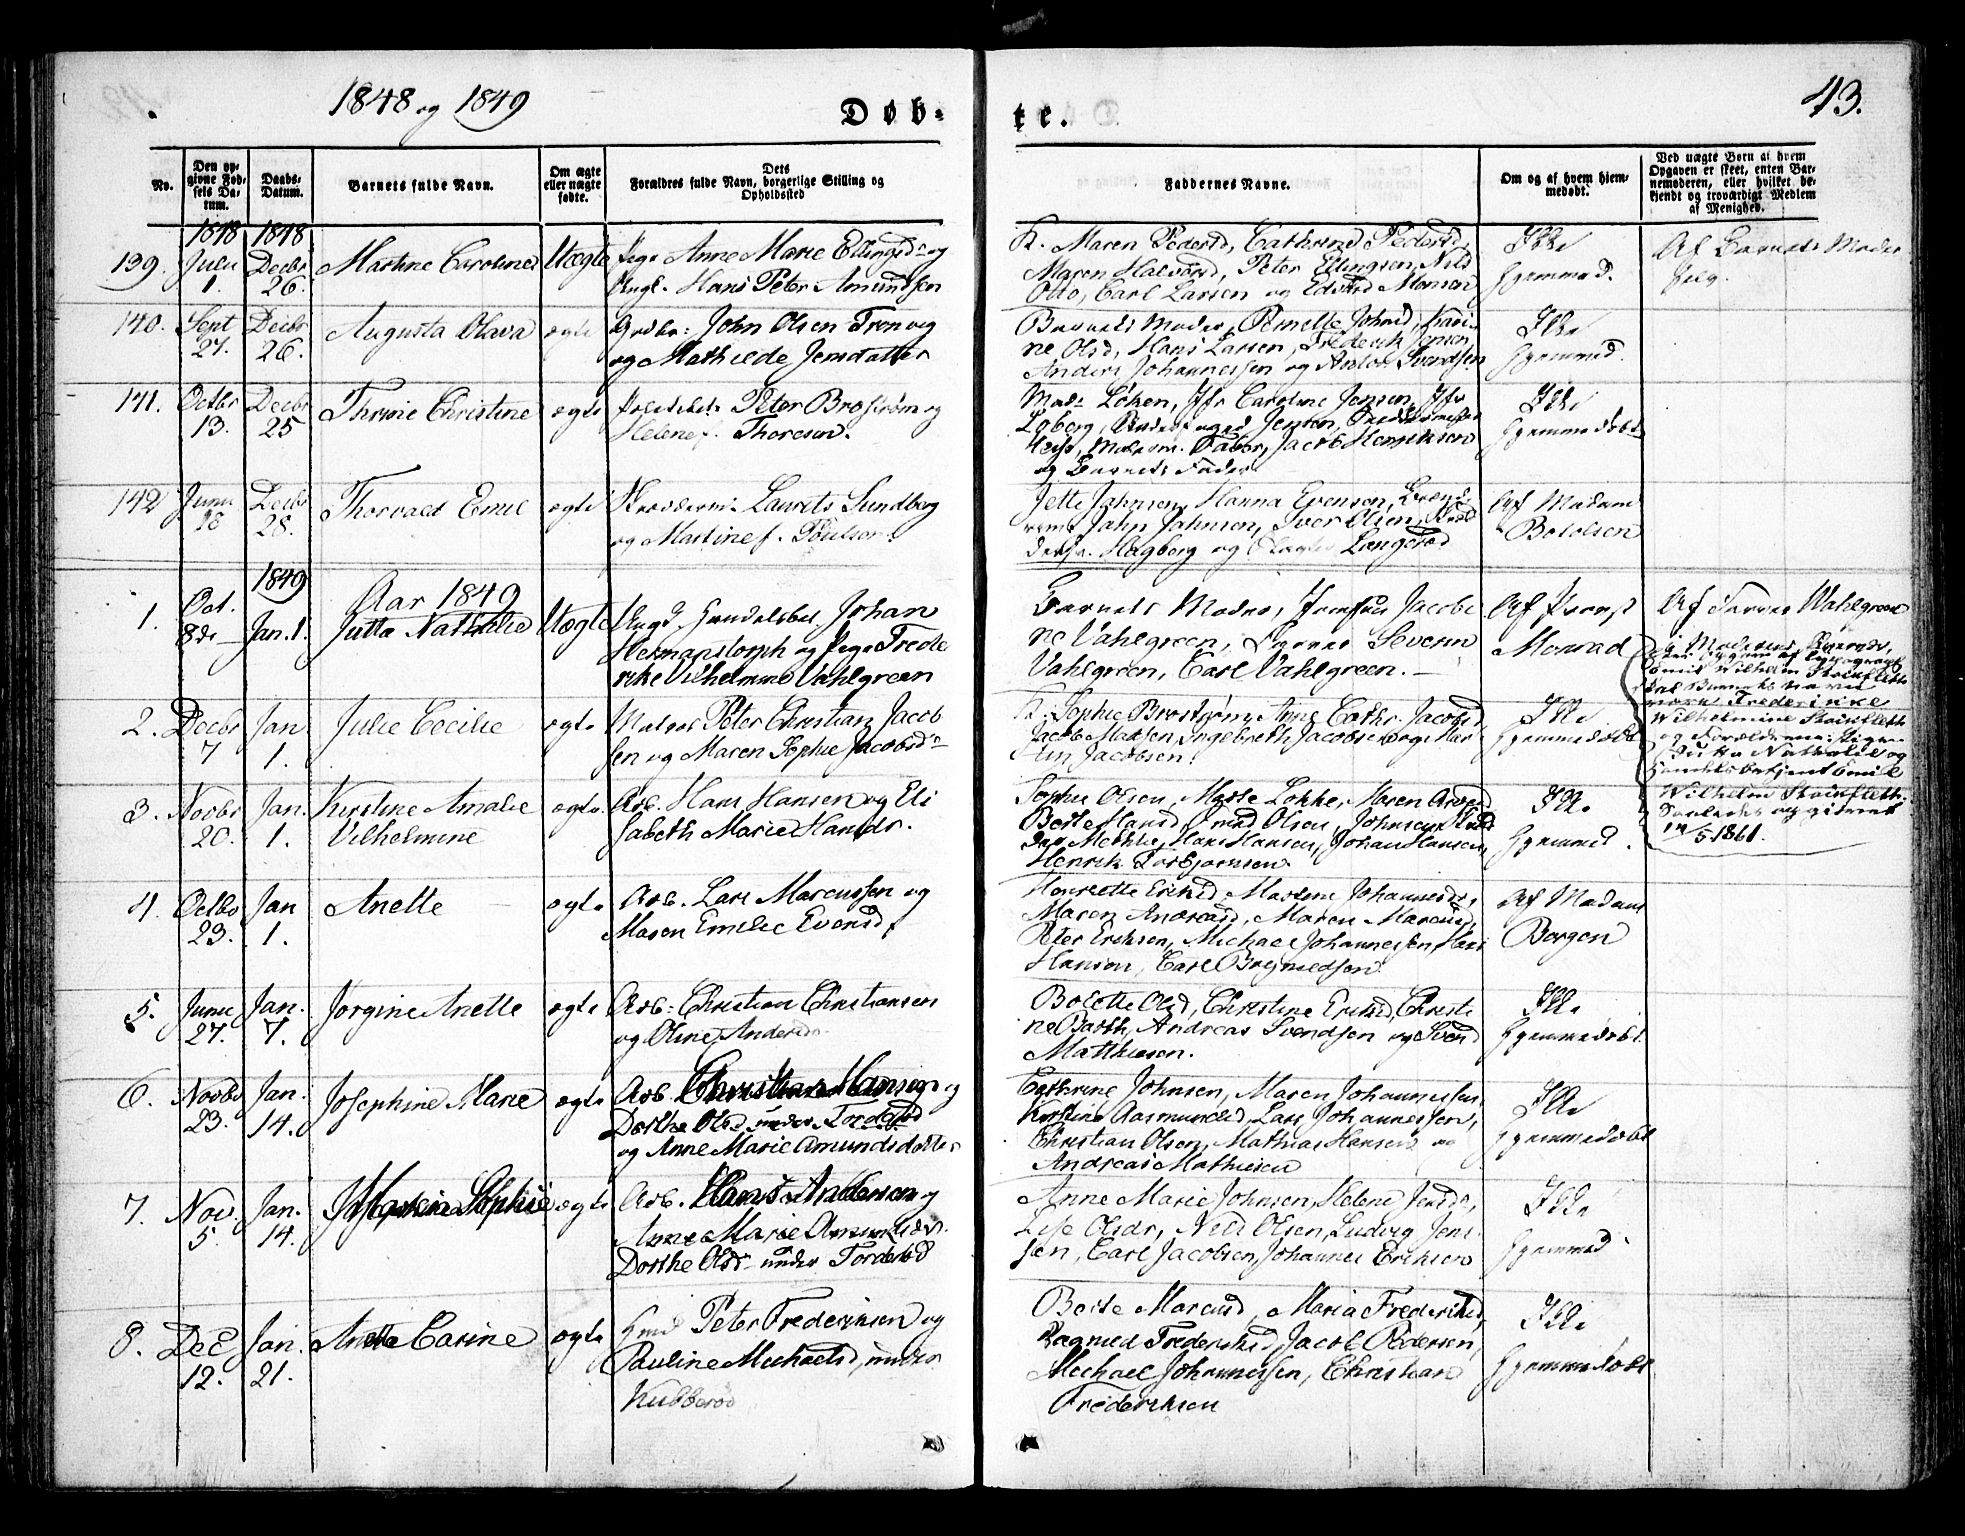 1848 og 1849
Døb-
te.
43.
No.
Den op-
givne Fød-
sels Da-
tum.
Daabs-
Datum.
Barnets fulde Navn.
Om ægte
eller uægte
fødte.
Dets
Forældres fulde Navn, borgerlige Stilling og
Opholdssted
Faddernes Navne.
Om og af hvem hjem-
medøbt.
Ved uægte Børn af hvem
Opgaven er skeet, enten Bar-
nemoderen, eller hvilket be-
kjendt og troværdigt Medlem
af Menighed.
1848 1848
139. Juli 1. Decbr 26. Martine Caroline Uægte Pige Anne Marie Ellingsd. og
Ungk. Hans Peter Amundsen
Maren Pedersd, Cathrine Pedersd,
Maren Halvorsd, Peter Ellingsen, Nils
Otto, Carl Larsen og Edvard Monsen
Ikke
Hjemmed.
Af Barnets Moder
selv.
140. Sept 27. Decbr 26. Augusta Olava ægte John Olsen Tronvig
og Mathilde Jensdatter
Barnets Moder, Pernelle Johnsd, Kari-
ne Olsd, Hans Larsen, Frederik Jensen,
Anders Johannessen og Anton Svendsen
Ikke
Hjemmed.
141. Octbr 13. Decbr 25 Thrine Christine ægte Peter Brostrøm og
Helene f. Thoresen.
Mad. Løken, Jfr Caroline Jensen, Jfr
Jensen,
Faber, Jacob Henriksen
og Barnets Fader
Ikke
Hjemmedøbt
142 Juni 28 Decbr 28. Thorvald Emil ægte Laurits Sundberg
og Martine f. Poulsen.
Jette Jahnsen, Hanna Evensen,
Jahn Jahnsen, Iver Olsen,
Hagberg og Langerød
Af Madam
Botolsen
1849
Aar 1849
1. Oct. 8de Jan. 1. Jutta Nathalie Uægte Ungk. Handelsbet. Johan
Hermanstorph og Pige Frede
rikke Vilhelmine Vahlgreen
Barnets Moder, Jomfru Jacobi
ne Vahlgreen, Severin
Vahlgreen, Carl Vahlgreen.
Af Provst
Monrad
Af Vahlgreen
Emil Wilhelm Steinfleth
Barnets navn
Frederikke
Wilhelmine Steinfleth
og Forældrene: Pige
Jutta Nathalie og
Handelsbetjent Emil
Wilhelm Steinfleth.
Saaledes opgivet
5 1861.
2. Decbr 7 Jan 1. Julie Cecilie ægte Matros Peter Christian Jacob
sen og Maren Sophie Jacobsd
Sophie Brostrøm, Anne Cathr. Jacobsd
Jacob Madsen, Ingebreth Jacobsen og Mar
tin Jacobsen.
Ikke
Hjemmedøbt
3. Novbr 20. Jan. 1. Kirstine Amalie
Vilhelmine
ægte Arb. Hans Hansen og Eli
sabeth Marie Hansdr.
Sophie Olsen, Mette Løkke, Maren
Berte Hansd, Olsen, Johnsen
Hans Hansen, Johan Hansen,
Henrik Torbjørnsen
Ikke
Hjemmed.
4. Octbr 23. Jan 1. Anette ægte Arb. Lars Marcussen og
Maren Emilie Evensd.
Henriette Eriksd, Martine Johannesdr,
Maren Andreasd, Maren Marcusd,
Peter Eriksen, Michael Johannessen, Hans
Hansen, Carl
Af Madam
Borgen
5. Juni 27. Jan. 7. Jørgine Anette ægte Arb. Christian Christiansen
og Oline Andersd.
Bolette Olsd, Christine Eriksd, Christi
ne Barth, Andreas Svendsen og Svend
Matthiesen.
Ikke
Hjemmedøbt.
6. Novbr 23. Jan. 14. Josephine Marie ægte Arb. Christian Hansen og
Dorthe Olsd under Torderød
og Anne Marie Amundsdatter
Cathrine Johnsen, Maren Johannessen
Kirstine Aasmundsd, Lars Johannessen,
Christian Olsen, Mathias Hansen og
Andreas Mathiesen
Ikke
Hjemmedøbt
7. Nov. 5 Jan. 14. Sophie ægte Arb. Hans Andersen og
Anne Marie
Dorthe Olsdr under Torderød
Anne Marie Johnsen, Helene Jensdr,
Lise Olsdr, Nils Olsen, Ludvig Jens
sen, Carl Jacobsen, Johannes Eriksen
Ikke
Hjemmed.
8. Dec 12. Jan. 21. Anette Carine ægte Peter Frederiksen og
Pauline Michaelsd, under
Kubberød
Berte Marcusd, Maria Frederiksd,
Ragnild Frederiksd, Jacob Pedersen,
Michael Johannessen, Christian
Frederiksen
Ikke
Hjemmedøbt